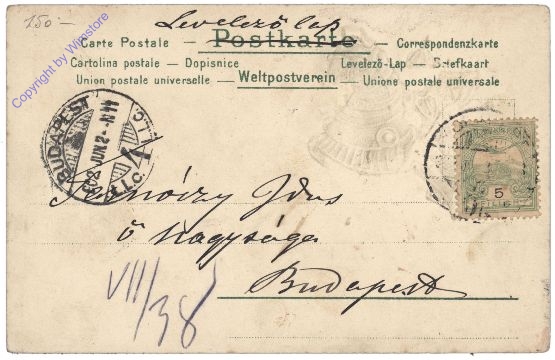 150.-
Levelező lap
Carte Postale – Postkarte – Correspondenzkarte
Cartolina postale – Dopisnice
Levelező-Lap – Briefkaart
Union postale universelle – Weltpostverein – Unione postale universale
Copyright by Wienstore
BUDAPEST
902 JUN 2
V
5
Idus
ő Nagysága
Budapest
VII/38